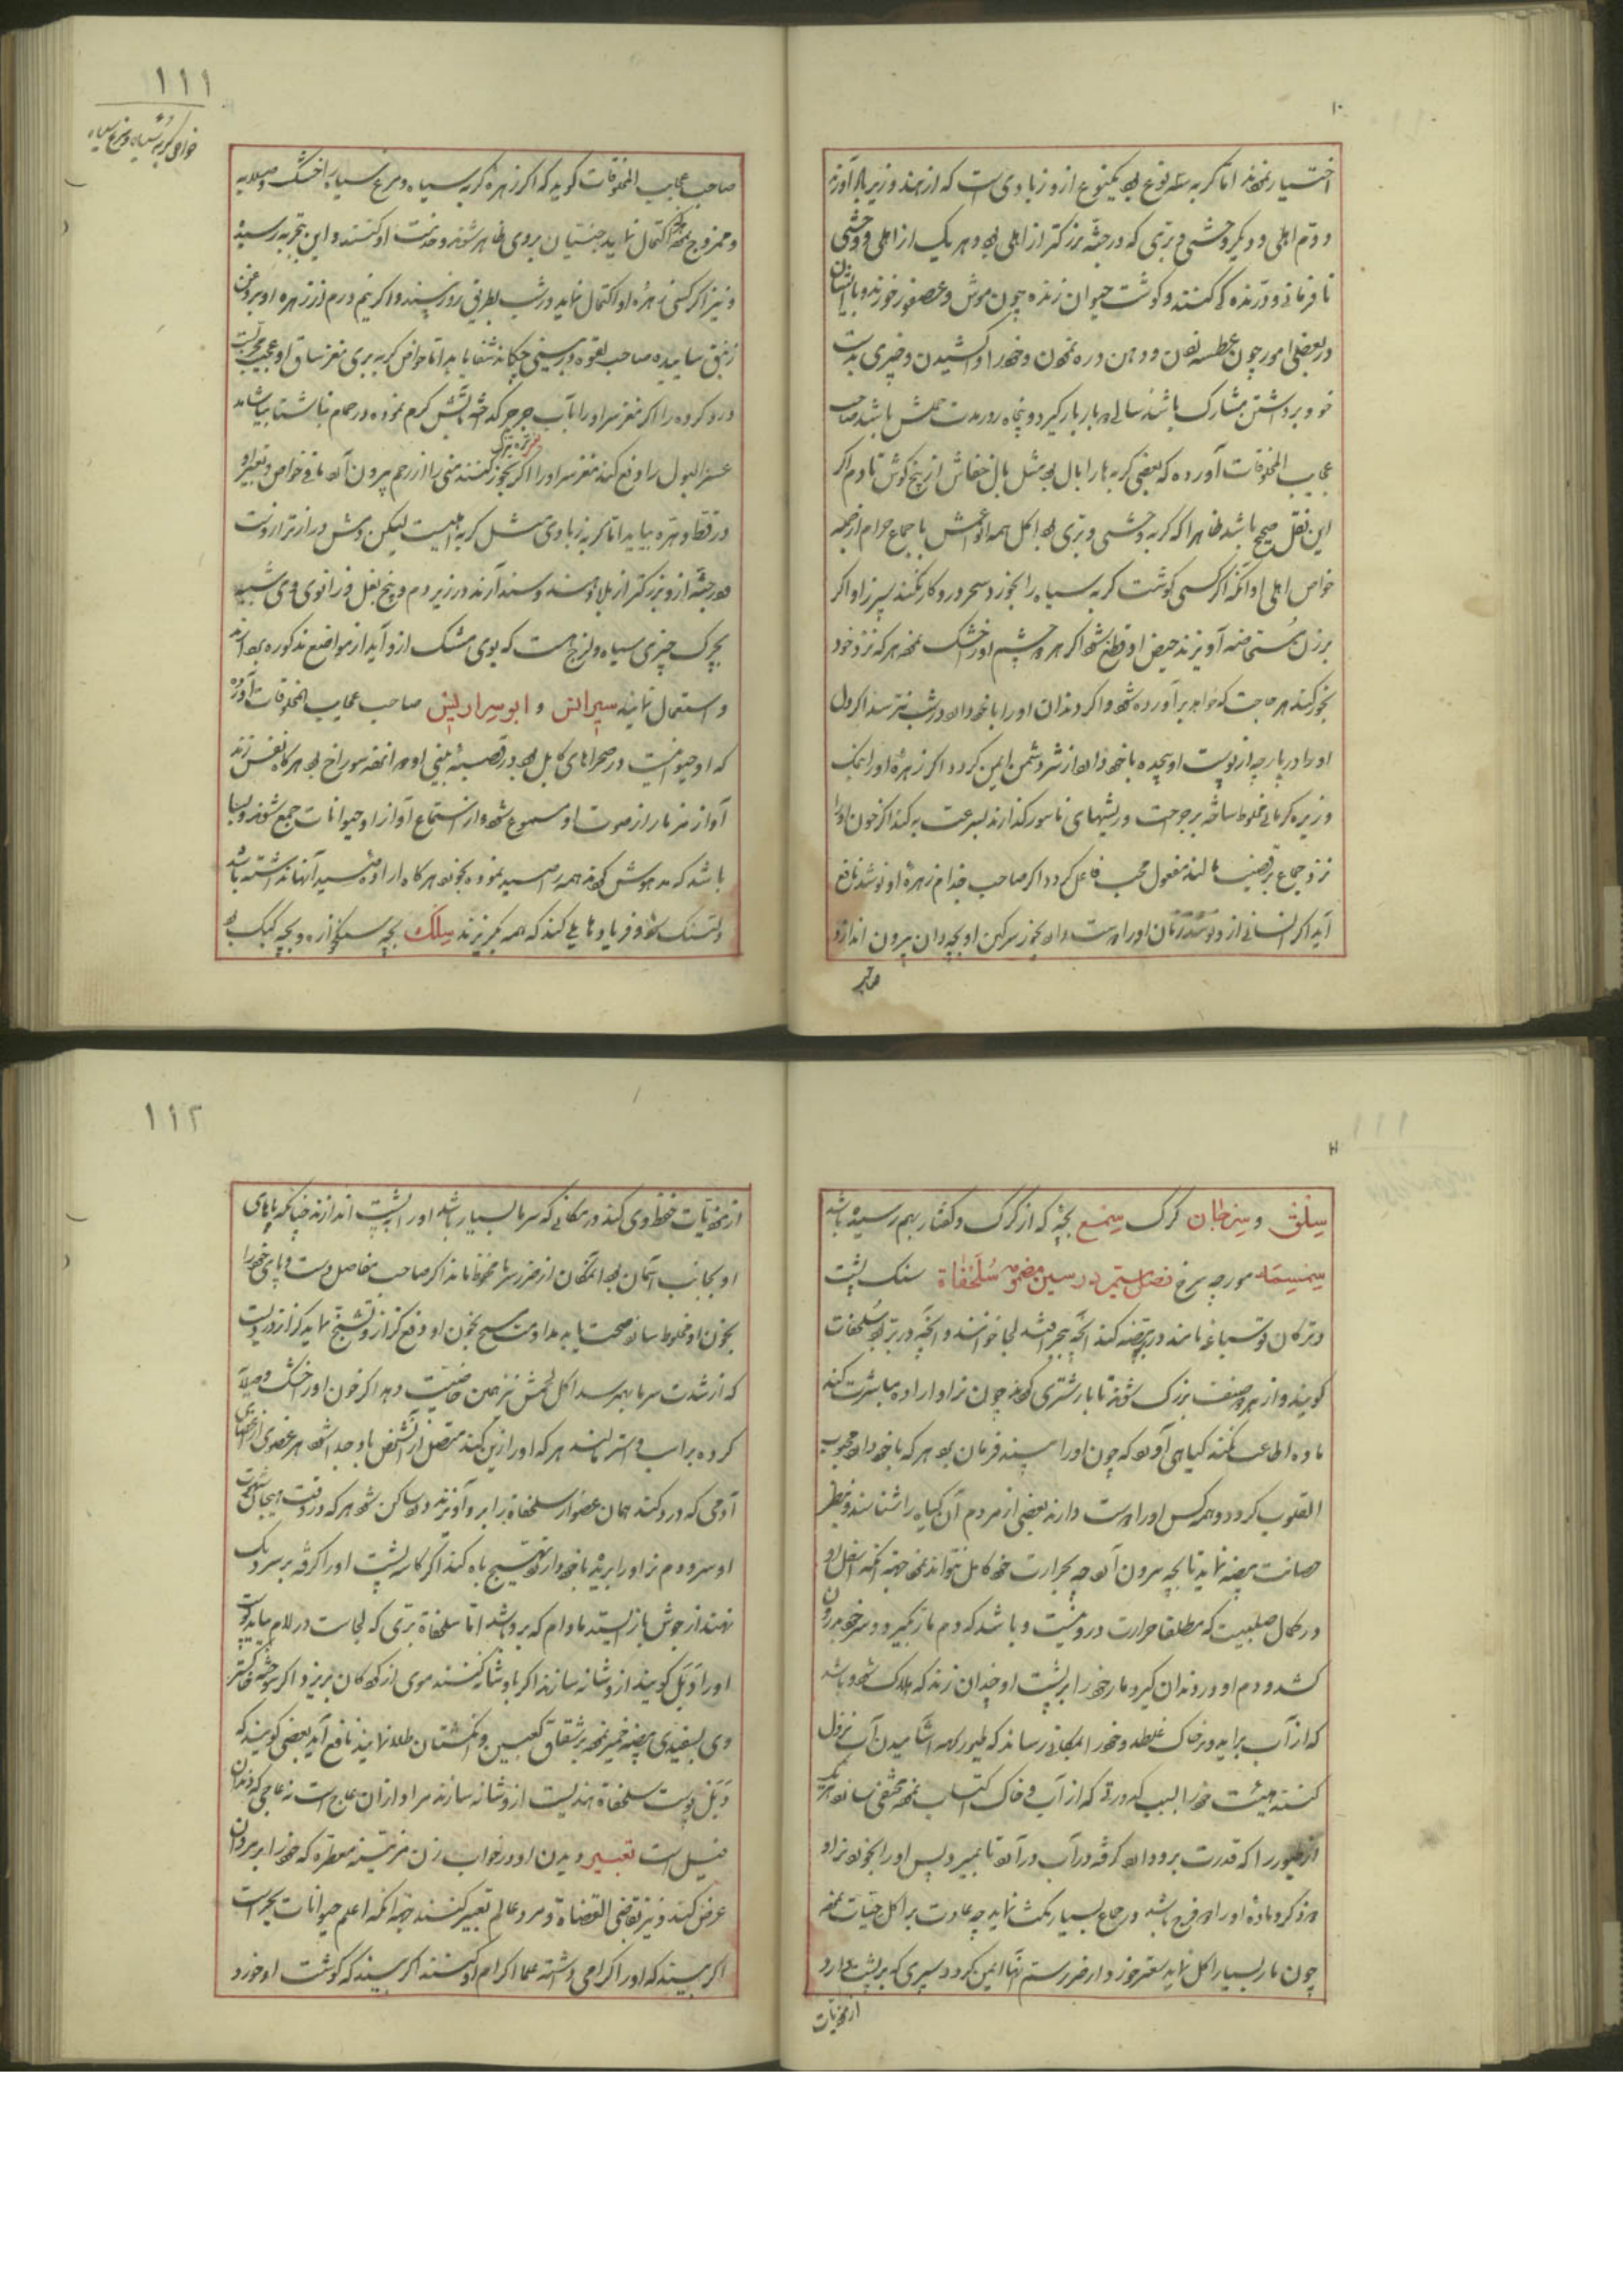 اختیار نموده اند اما گربه سه نوع بود یکنوع ازو زبادی است که از هند و زیرباد آورند
و دوم اهلی و دیگر وحشی و بری که در جثه بزرگتر از اهلی بود و هر یک از اهلی و وحشی
نافرمانی و درندگی کنند و گوشت حیوان زنده چون موش و عصفور خورند و با انسان
در بعضی امور چون عطسه زدن و دهن دره نمودن و خود را کشیدن و چیزی بدست
خود برداشتن مشارک باشند سالی دو بار بار گیرد و پنجاه روز مدت حملش باشد صاحب
عجایب المخلوقات آورده که بعضی گربه ها را بال بود مثل بال خفاش از بیخ گوش تا دم اگر
این نقل صحیح باشد ظاهرا که گربه وحشی و بری بود اکل همه انواعش باجماع حرام از جمله
خواص اهلی او آنکه اگر کسی گوشت گربه سیاه را بخورد سحر درو کار نکند سپرز او اگر
بر زن مستحاضه آویزند حیض او قطع شود اگر هر دو چشم او خشک نموده هر که نزد خود
بخور کند هر حاجت که خواهد برآورده شود و اگر دندان او را با خود دارد در شب نترسد اگر دل
او را در پارچه از پوست او پیچیده با خود دارد از شر دشمن ایمن گردد اگر زهره او را بنمک
و زیره کرمانی مخلوط ساخته بر جراحت و ریشهای ناسور گذارند بسرعت به کند اگر خون او را
نزد جماع بر قضیب مالند مفعول محب فاعل گردد اگر صاحب جذام زهره او نوشد نافع
آید اگر انسانی ازو نوشد زنان او را دوست دارند بخور سرگین او بچه دان بیرون اندازد
صاحب
۱۱۱
خواص گربه سیاه و مرغ سیاه
صاحب عجایب المخلوقات گوید که اگر زهره گربه سیاه و مرغ سیاه را خشک و صلایه
و ممزوج نموده اکتحال نمایند جنیان بروی ظاهر شوند و خدمت او کنند و این بتجربه رسیده
و نیز اگر کسی زهره او اکتحال نماید در شب بطریق روز بیند و اگر نیم درم از زهره او بروغن
زنبق ساییده صاحب لقوه در بینی چکاند شفا یابد اما خواص گربه بری مغز ساق او عجیب مجربست
درد گرده را اگر مغز سر او را بآب جرجیر گداخته بآتش گرم نموده در حمام ناشتا بیاشامد
عسر البول را دفع کند مغز سر او را اگر بخور کنند منی را از رحم بیرون آرد مانی خواص و تعبیر او
در قط و هره بیاید اما گربه زبادی مثل گربه اهلیست لیکن دمش درازتر از وست
و در جثه ازو بزرگتر از بلاد هند و سند آرند در زیر دم و بیخ بغل و زانوی وی شبیه
بچرک چیزی سیاه و لزج هست که بوی مشک ازو آید از مواضع مذکوره بردارند
و استعمال نمایند سیرانس و ابوسرارلیس صاحب عجایب المخلوقات آورده
که او حیوانیست در صحراهای کابل بود در قصبه بینی او دوازده سوراخ بود هرگاه نفس زند
آواز مزمار از صوت او مسموع شود و از استماع آواز او حیوانات جمع شوند و بسا
باشد که مدهوش گردند همه را صید نموده بخورد هرگاه اراده صید آنها نداشته باشد
دلتنگ شود و فریاد هایلی کند که همه بگریزند سلک بچه سنگخواره و بچه کبک بود
سلق و سرحان گرگ سمع بچه که از گرگ و کفتار بهم رسیده باشد
سمسمه مورچه سرخ فصل ششم در سین مضمومه سلحفاة سنگ پشت
و ترکان توسباغه نامند در بیضه کند آنچه ببحر افتد لجا خوانند و آنچه در بر بود سلحفات
گویند و از هر دو صنف بزرگ شوند تا بار شتری گردند چون نر او اراده مباشرت کند
ماده اطاعت نکند گیاهی آورد که چون او را بیند فرمان برد هر که با خود دارد محبوب
القلوب گردد و همه کس او را دوست دارند بعضی از مردم آن گیاه را شناسند و بنظر
حضانت بیضه نماید تا بچه بیرون آرد چه بحرارت خود کامل نتواند نمود جهة آنکه اسفل او
در کمال صلبیست که مطلقا حرارت درو نیست و باشد که دم مار بگیرد و سر خود درون
کشد و دم او در دندان گیرد و مار خود را بر پشت او چندان زند که هلاک شود و باشد
که از آب برآید و در خاک غلطد و خود را بمکانی رساند که طیور بجهة آشامیدن آب نزول
کنند هیئت خود را بسبب کدورتی که از آب و خاک اکتساب نموده مخفی سازد هر یک
از طیور را که قدرت برو دارد گرفته در آب درآرد تا بمیرد پس او را بخورد نر او
دو ذکر و ماده او را دو فرج باشد در جماع بسیار مکث نماید چه عادت بر اکل حیات نموده
چون مار بسیار اکل نماید سعتر خورد و از ضرر سم آنها ایمن گردد سپری که بر پشت دارد
از موذیات
۱۱۲
از موذیات حفظ وی کند در مکانی که سرما بسیار باشد او را به پشت اندازند چنانکه پاهای
او بجانب آسمان بود آنمکان از ضرر سرما محفوظ ماند اگر صاحب مفاصل دست و پای خود را
بخون او مخلوط سازد صحت یابد مداومت مسح بخون او دفع کزاز و تشنج نماید کزاز دردیست
که از شدت سرما بهم رسد اکل لحمش نیز همین خاصیت دهد اگر خون او را خشک و صلایه
کرده بر اسب و استر مالند هر که او را زین کند متصل از آن شخص باو جدا شود هر عضوی از اعضای
آدمی که درد کند همان عضو از سلحفاة را برو آویزند درد ساکن شود هر که در وقت هیجان شهوت
او سر و دم نر او را بریده با خود دارد تهییج باه کند اگر کاسه پشت او را گرفته بر سر دیگ
نهند از جوش باز ایستد مادام که برو باشد اما سلحفاة بری که لجاست در لام بیاید پوست
او را ذبل گویند ازو شانه سازند اگر باو شانه کنند موی از کودکان بریزد و اگر سوخته خاکستر
وی بسفیدی بیضه خمیر نموده بر شقاق کعبین و انگشتان طلا نمایند نافع آید بعضی گویند که
ذبل پوست سلحفاة هندیست ازو شانه سازند مراد از آن عاج است نه عاجی که دندان
فیل است تعبیر دیدن او در خواب زن مزینه معطره که خود را بر مردان
عرض کند و نیز بقاضی القضاة و مرد عالم تعبیر کنند جهة آنکه اعلم حیوانات بحر است
اگر بیند که او را گرامی داشته علما اکرام او کنند اگر بیند که گوشت او خورد